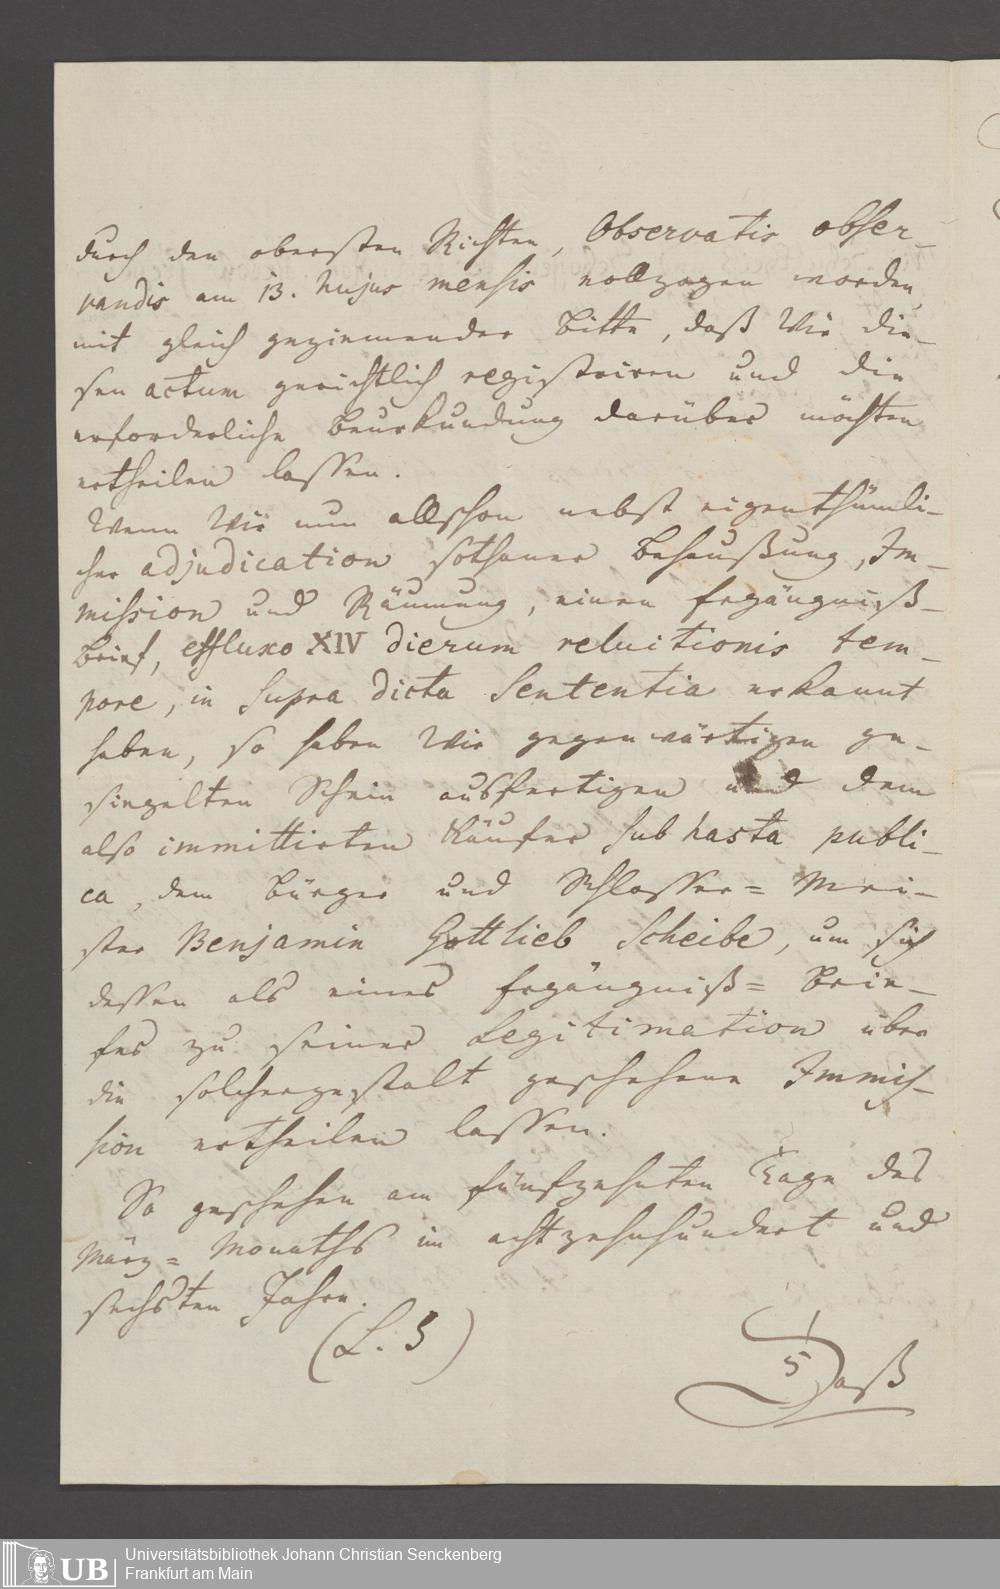 durch den obersten Richter, Observatis obser-
vandis am 13. hujus mensis vollzogen worden,
mit gleich geziemender Bitte, daß Wir die-
sen actum gerichtlich registriren und die
erforderliche Beurkundung darüber möchten
ertheilen lassen.
Wenn Wir nun allschon nebst eigenthümli-
cher adjudication sothaner Behaußung, Im-
mission und Räumung, einen Ergängniß-
brief, effluxo XIV dierum reluitionis tem-
pore, in supra dicta Sententia erkannt
haben, so haben Wir gegenwärtigen ge-
siegelten Schein ausfertigen und dem
also immittirten Käufer sub hasta publi-
ca, dem Bürger und Schlosser= Mei-
ster Benjamin Gottlieb Scheibe, um sich
dessen als eines Ergängniß= Brie-
fes zu seiner Legitimation über
die solchergestalt geschehene Immis-
sion ertheilen lassen.
So geschehen am fünfzehnten Tage des
März= Monaths im achtzehnhundert und
sechsten Jahre.
(L. S)
5
Daß
UB Universitätsbibliothek Johann Christian Senckenberg
Frankfurt am Main